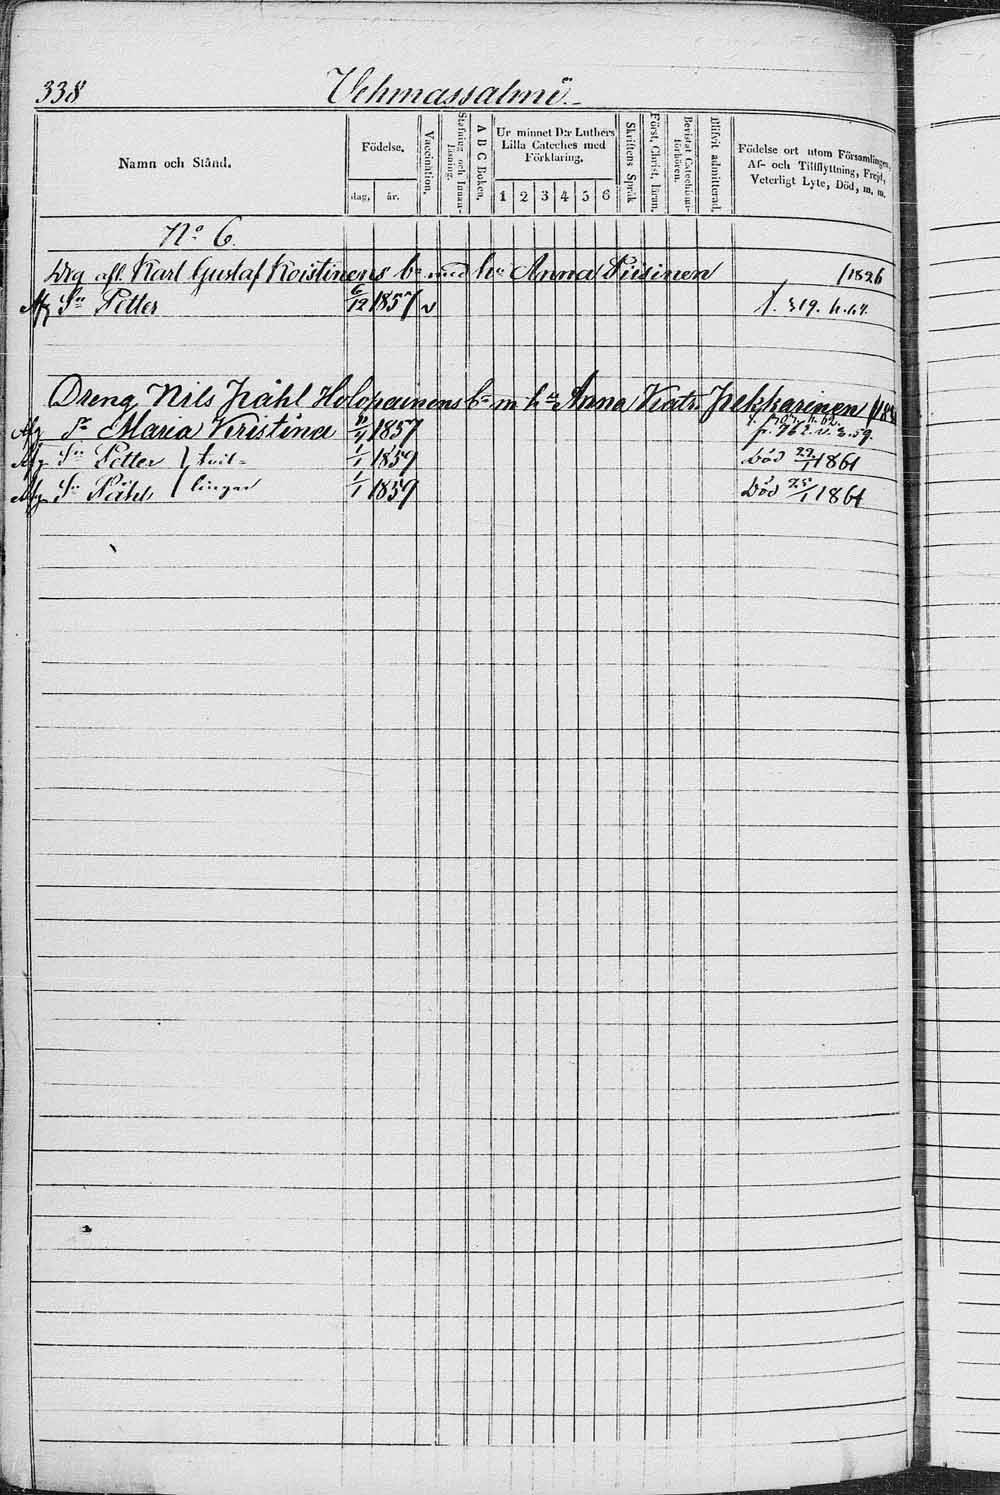 338 Vehmassalmi.
Namn och Stånd. Födelse. dag, år. Vaccination. Stafning och Innan-läsning. A B C Boken. Ur minnet D:r Luthers Lilla Cateches med Förklaring. 1 2 3 4 5 6 Skriftens Språk Först. Christ. Inran. Bevistat Catechismi-förhören. Blifvit admitterad. Födelse ort utom Församlingen, Af- och Tillflyttning, Frejd, Veterligt Lyte, Död, m. m.
No 6.
Drg afl. Karl Gustaf Koistinens bn med hu Anna Siisinen /1826
Afg Sn Petter 6/12 1857 v f. 319. h. 64.
Dreng Nils Påhl Holopainens bn m hu Anna Katr. Pekkarinen
Afg Dr Maria Kristina /4 1857 fr. 762. v. 3. 59.
Afg Sn Petter } tvil- 1/1 1859 Död 22/1 1861
Afg Sn Påhl } lingar 1/1 1859 Död 25/1 1861